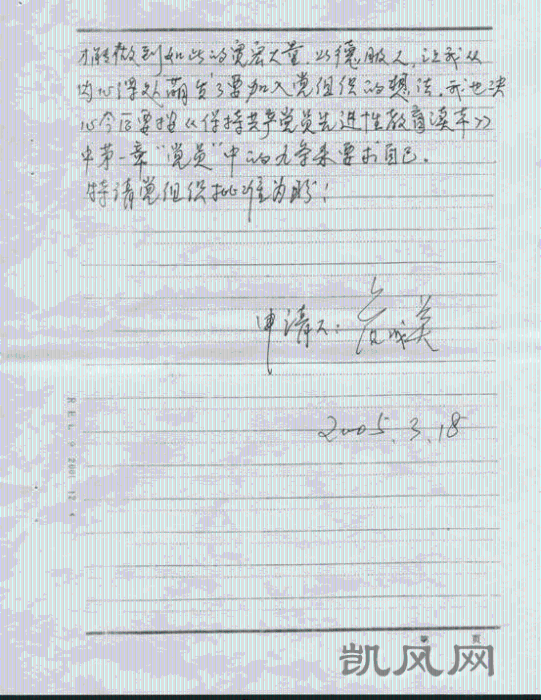 才能做到如此的宽宏大量,以德服人,让我从
内心深处萌发了要加入党组织的想法,我也决
心今后要按《保持共产党员先进性教育读本》
中第一章“党员”中的九条来要求自己。
特请党组织批准为盼!
申请人:
2005.3.18
REL.9 2001.12.4
第 页
凯风网